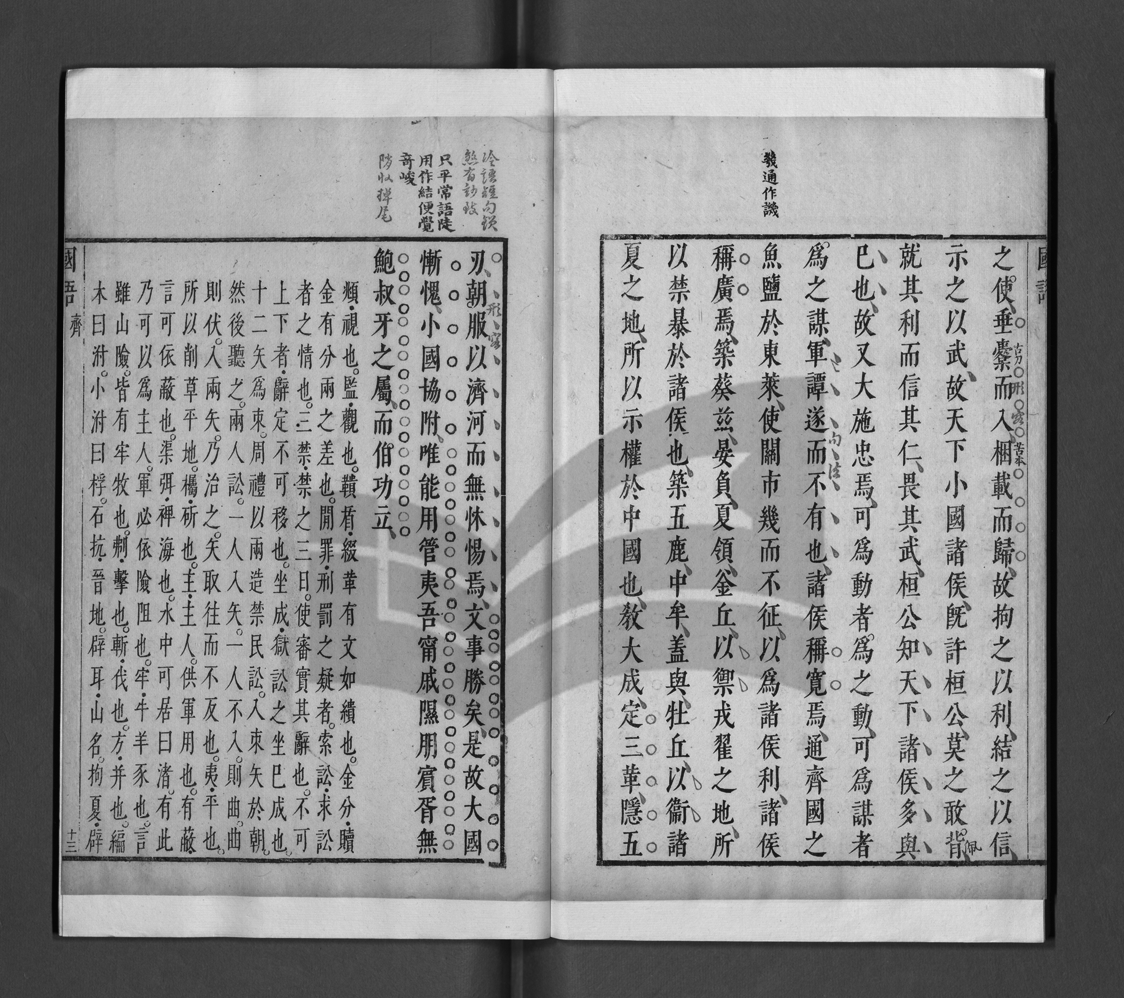 之使垂櫜而入稛載而歸故拘之以利結之以信
示之以武故天下小國諸侯旣許桓公莫之敢背
就其利而信其仁畏其武桓公知天下諸侯多與
已也故又大施忠焉可爲動者爲之動可爲謀者
爲之謀軍譚遂而不有也諸侯稱寬焉通齊國之
魚鹽於東萊使關市幾而不征以爲諸侯利諸侯
稱廣焉築葵茲晏負夏領釜丘以禦戎翟之地所
以禁暴於諸侯也築五鹿中牟蓋與牡丘以衞諸
夏之地所以示權於中國也敎大成定三革隱五
幾通作譏
國語
刃朝服以濟河而無怵惕焉文事勝矣是故大國
慚愧小國協附唯能用管夷吾甯戚隰朋賓胥無
鮑叔牙之屬而伯功立
頫視也監觀也鞼盾綴革有文如繢也金分贖
金有分兩之差也閒罪刑罰之疑者索訟求訟
者之情也三禁禁之三日使審實其辭也不可
上下者辭定不可移也坐成獄訟之坐已成也
十二矢爲束周禮以兩造禁民訟入束矢於朝
然後聽之兩人訟一人入矢一人不入則曲曲
則伏入兩矢乃治之矢取往而不反也夷平也
所以削草平地欘斫也主主人供軍用也有蔽
言可依蔽也渠弭裨海也水中可居曰渚有此
乃可以爲主人軍必依險阻也牢牛羊豕也言
雖山險皆有牢牧也刜擊也斬伐也方并也編
木曰泭小泭曰桴石抗晉地辟耳山名拘夏辟
冷語短句
只平常語陡
用作結便覺
奇峻
國語 齊 十三